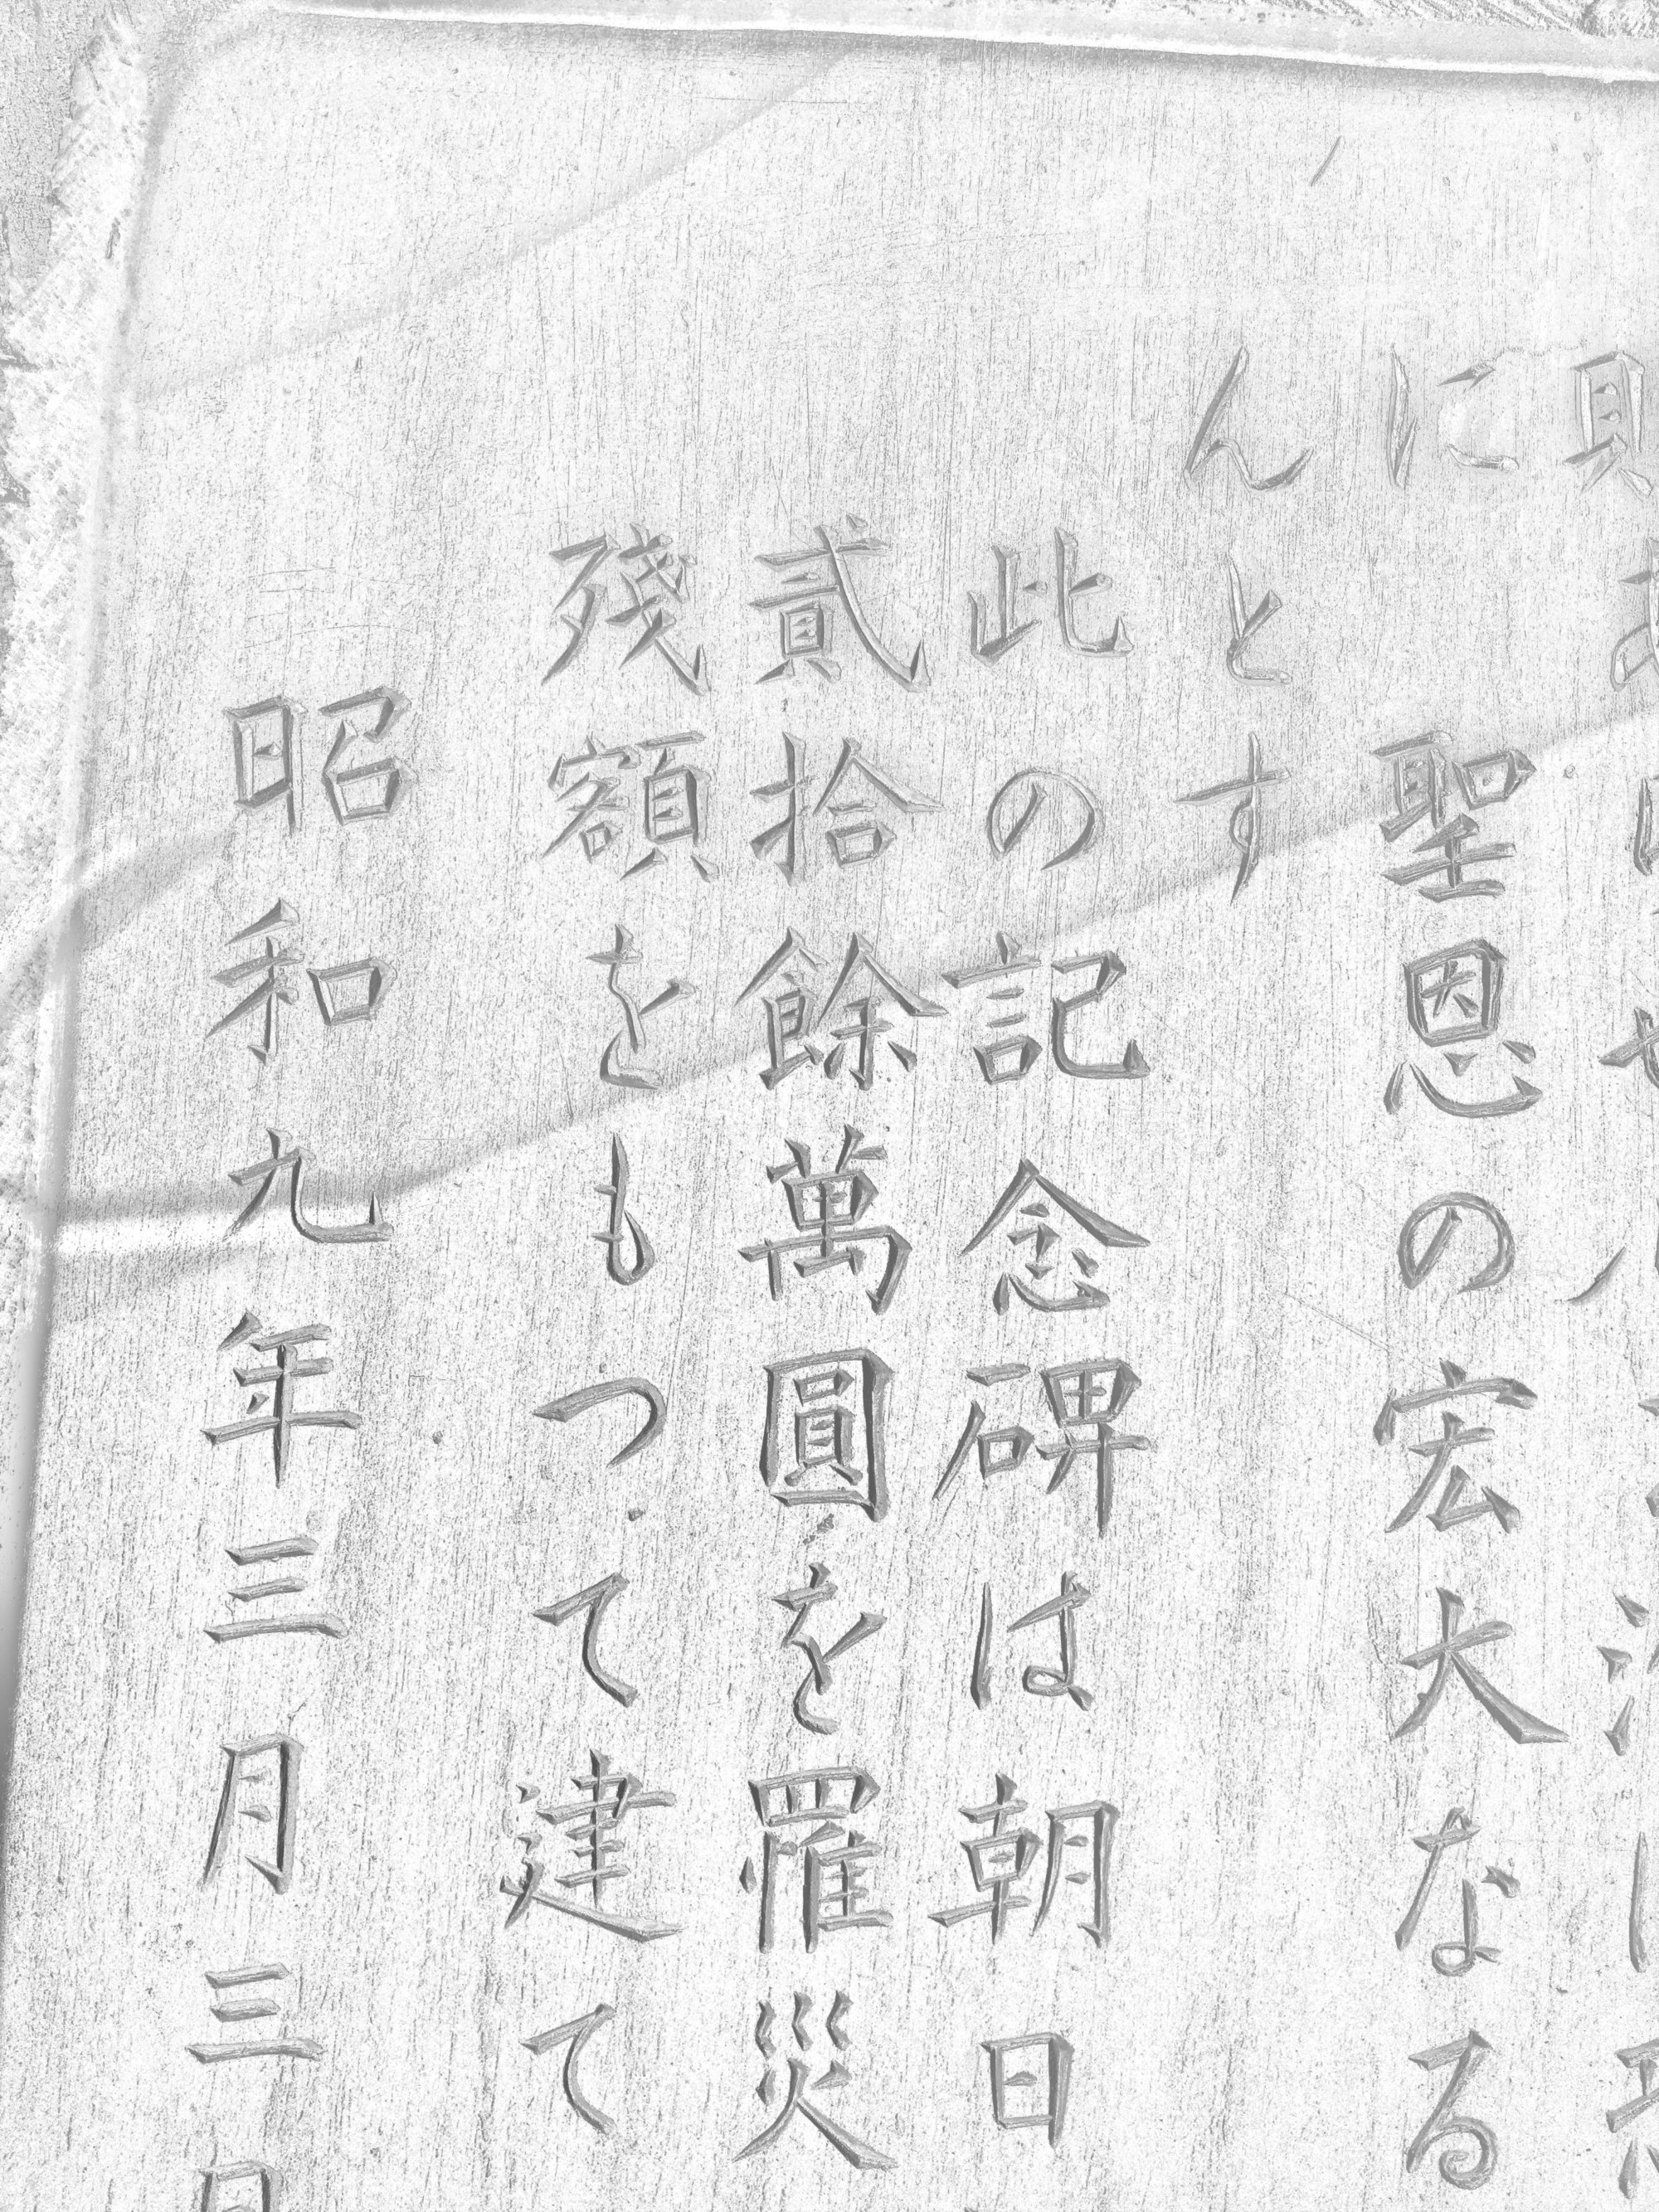 に　聖恩の宏大なる
んとす
此の記念碑は朝日
貳拾餘萬圓を罹災
残額をもつて建て
昭和九年三月三日